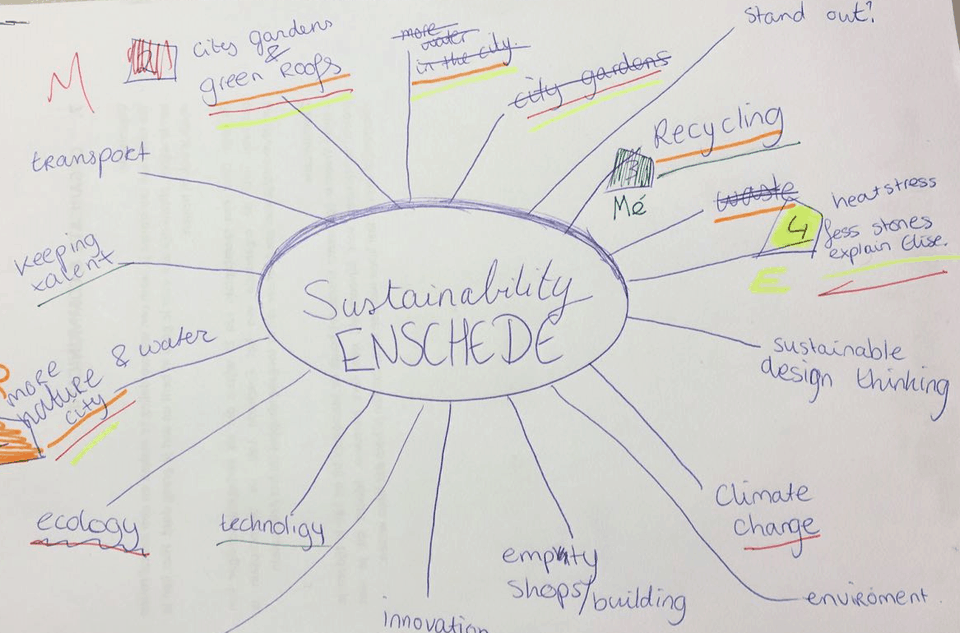 M
2
city gardens
&
green roofs
more
water
in the city.
city gardens
stand out?
Recycling
3
Mé
waste
4
E
heatstress
less stones
explain Elise.
transport
keeping
talent
Sustainability
ENSCHEDE
more
nature & water
city
sustainable
design thinking
ecology
technoligy
innovation
empty
shops/building
Climate
change
enviroment.